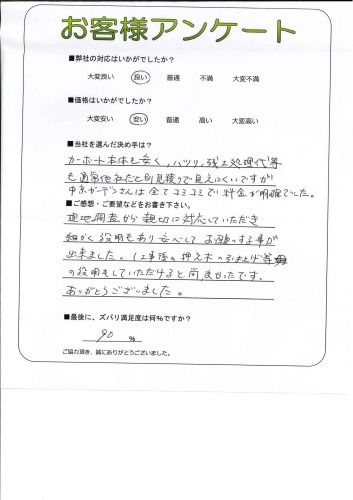 お客様アンケート
■弊社の対応はいかがでしたか？
大変良い 良い 普通 不満 大変不満
■価格はいかがでしたか？
大変安い 安い 普通 高い 大変高い
■当社を選んだ決め手は？
カーポート本体も安く、ハツリ、残土処理代等
も通常他社だと別見積りで見えにくいですが
中京ガーデンさんは全てコミコミで料金が明確でした。
■ご感想・ご要望などをお書き下さい。
現地調査から親切に対応していただき
細かく説明もあり安心してお願いする事が
出来ました。工事後の押え木の引き上げ等
の説明もしていただけると尚、良かったです。
ありがとうございました。
■最後に、ズバリ満足度は何%ですか？
90 %
ご協力頂き、誠にありがとうございました。